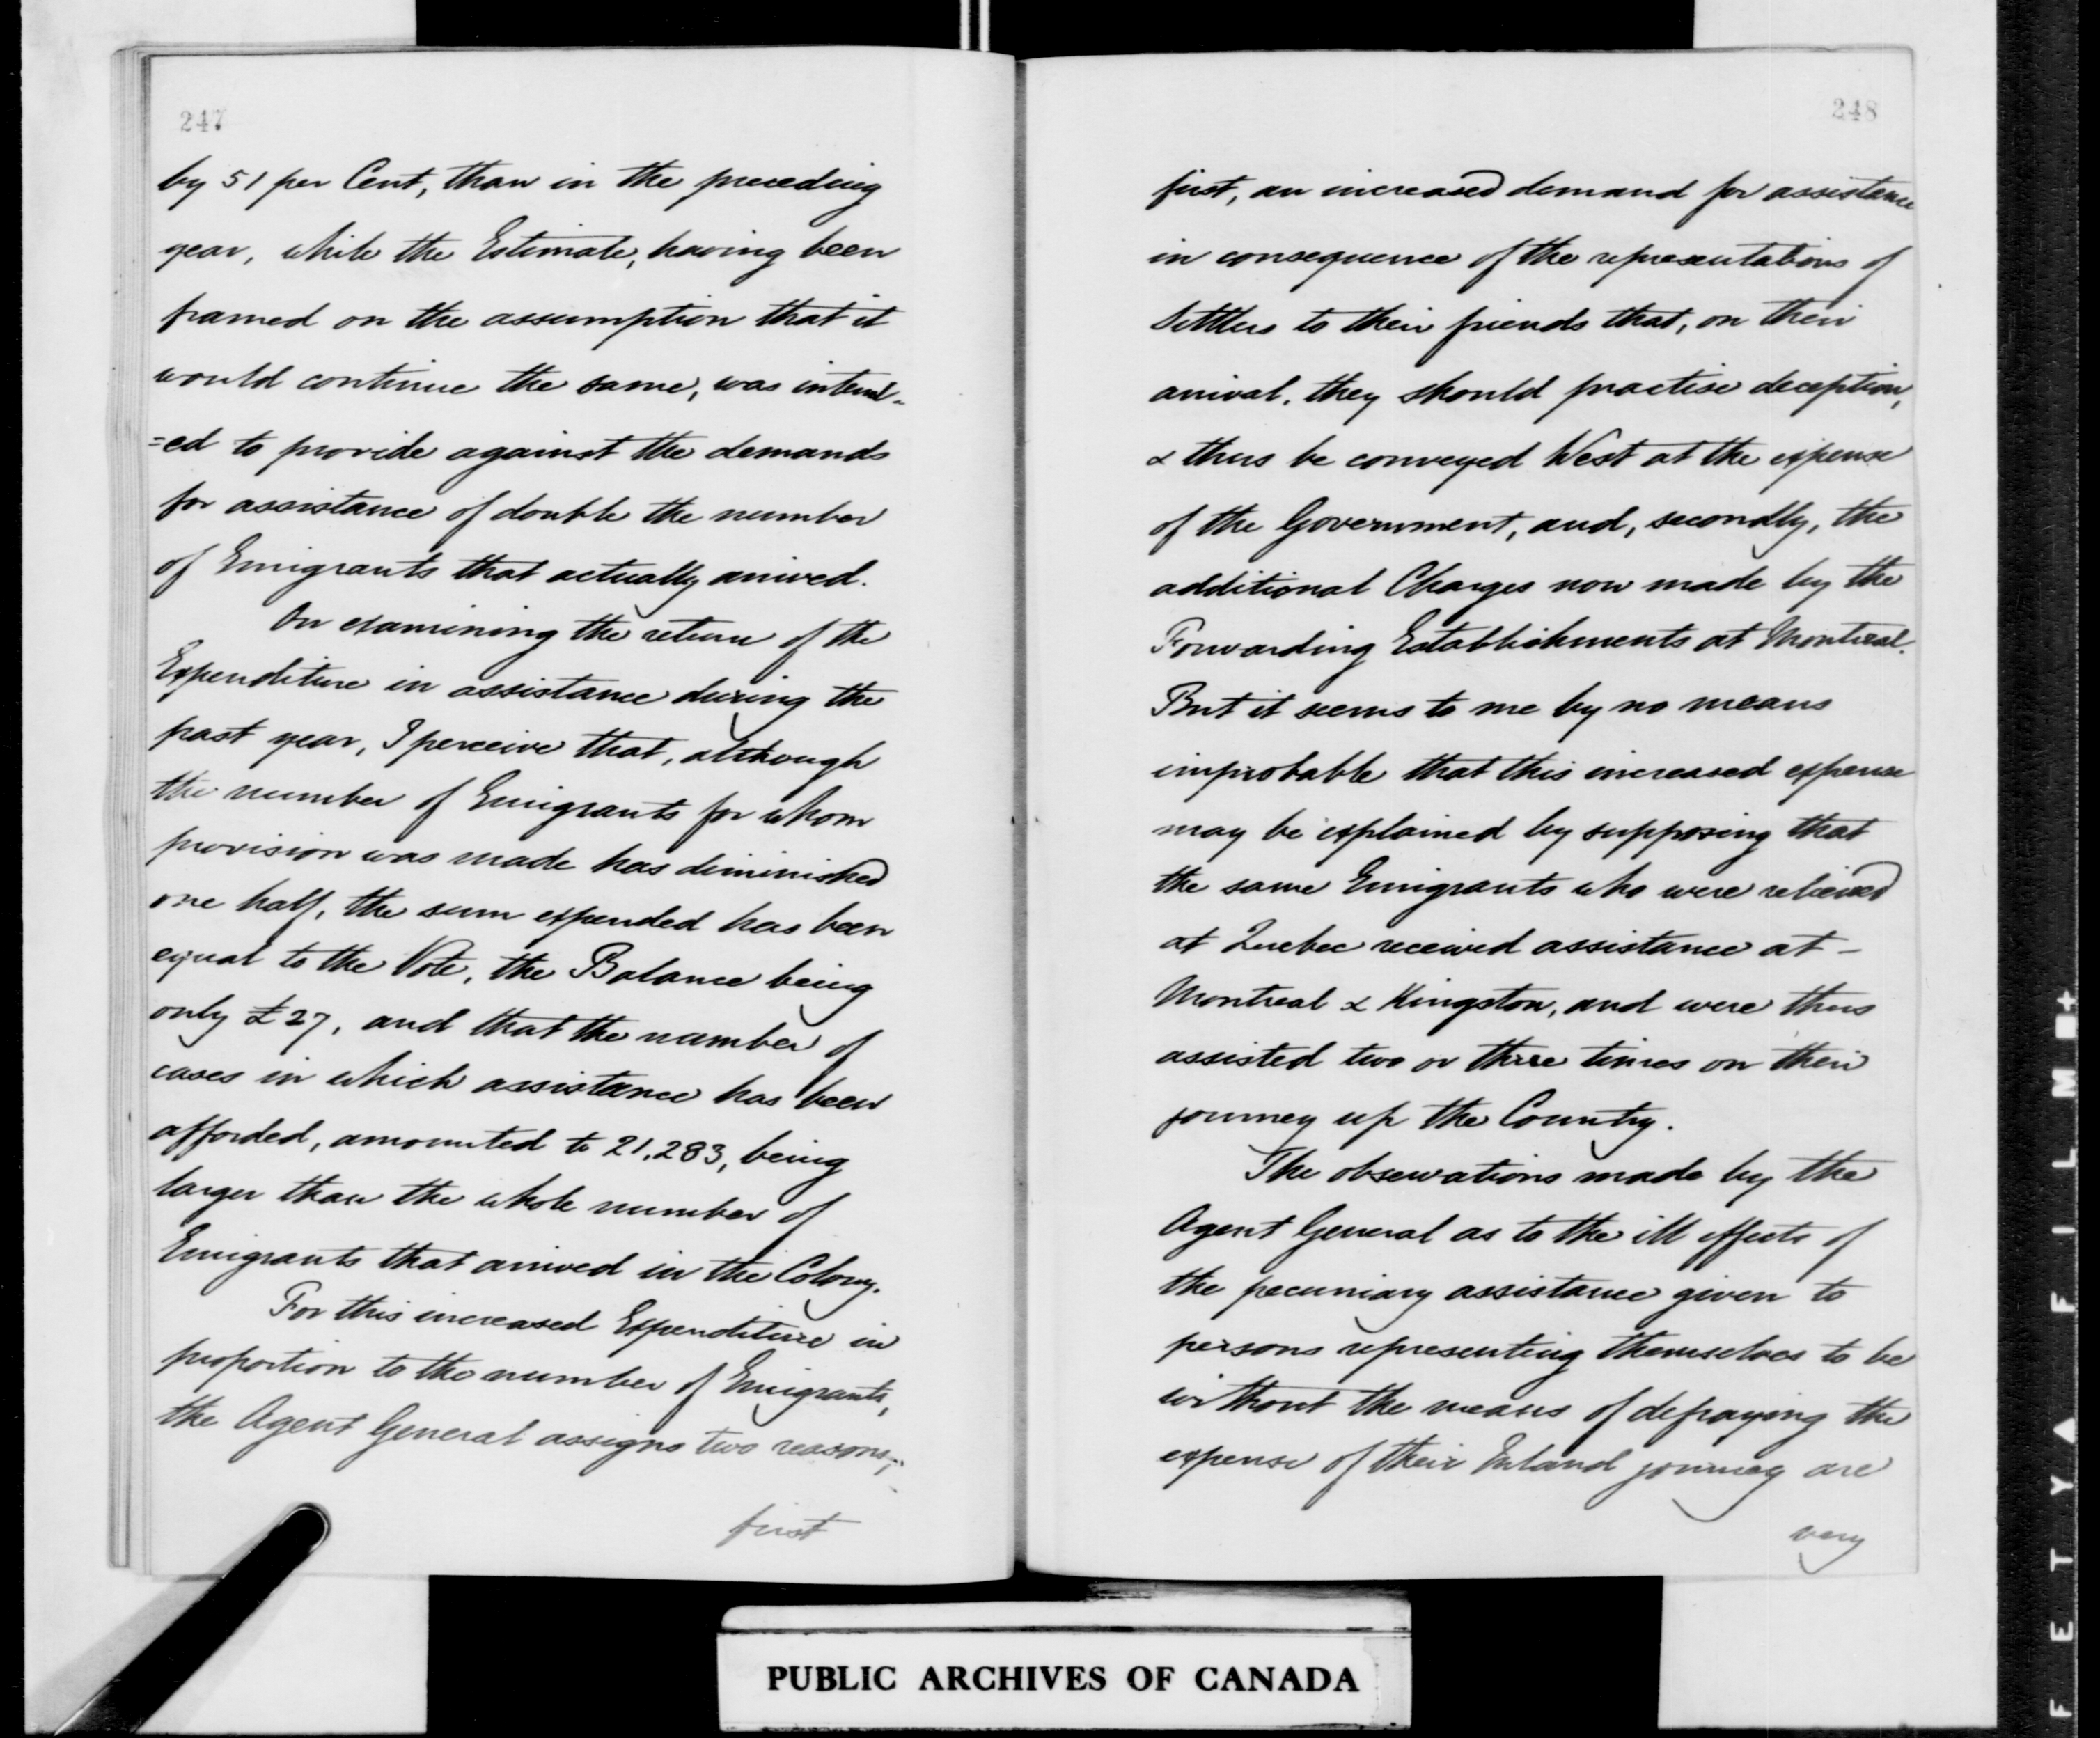 247
by 51 per Cent, than in the preceding
year, while the Estimate, having been
framed on the assumption that it
would continue the same, was intend-
=ed to provide against the demands
for assistance of double the number
of Emigrants that actually arrived.
On examining the return of the
Expenditure in assistance during the
past year, I perceive that, although
the number of Emigrants for whom
provision was made has diminished
one half, the sum expended has been
equal to the Vote, the Balance being
only £27, and that the number of
cases in which assistance has been
afforded, amounted to 21,283, being
larger than the whole number of
Emigrants that arrived in the Colony.
For this increased Expenditure in
proportion to the number of Emigrants,
the Agent General assigns two reasons,
first
248
first, an increased demand for assistance
in consequence of the representations of
Settlers to their friends that, on their
arrival, they should practise deception,
& thus be conveyed West at the expense
of the Government, and, secondly, the
additional Charges now made by the
Forwarding Establishments at Montreal.
But it seems to me by no means
improbable that this increased expense
may be explained by supposing that
the same Emigrants who were relieved
at Quebec received assistance at -
Montreal & Kingston, and were thus
assisted two or three times on their
journey up the Country.
The observations made by the
Agent General as to the ill effects of
the pecuniary assistance given to
persons representing themselves to be
without the means of defraying the
expense of their Inland journey are
very
PUBLIC ARCHIVES OF CANADA
FETY FILM